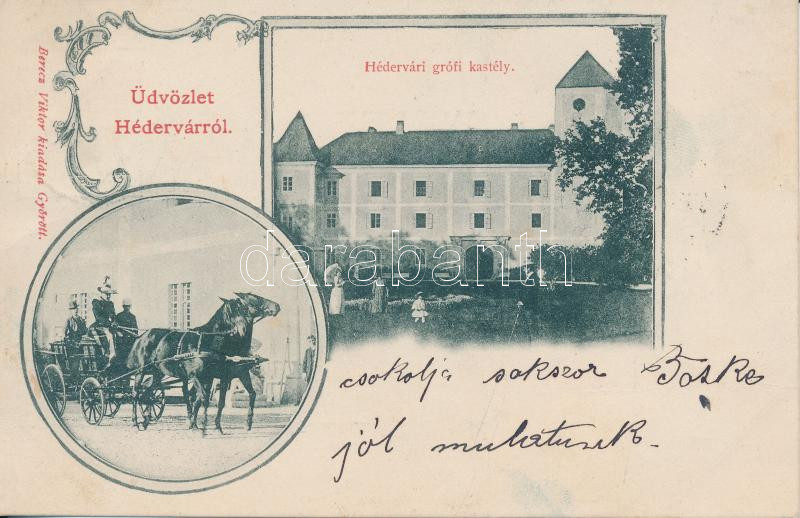 Üdvözlet
Hédervárról.
Hédervári grófi kastély.
Berecz Viktor kiadása Győrött.
darabanth
csokolja sokszor Böske
jól mulatunk.